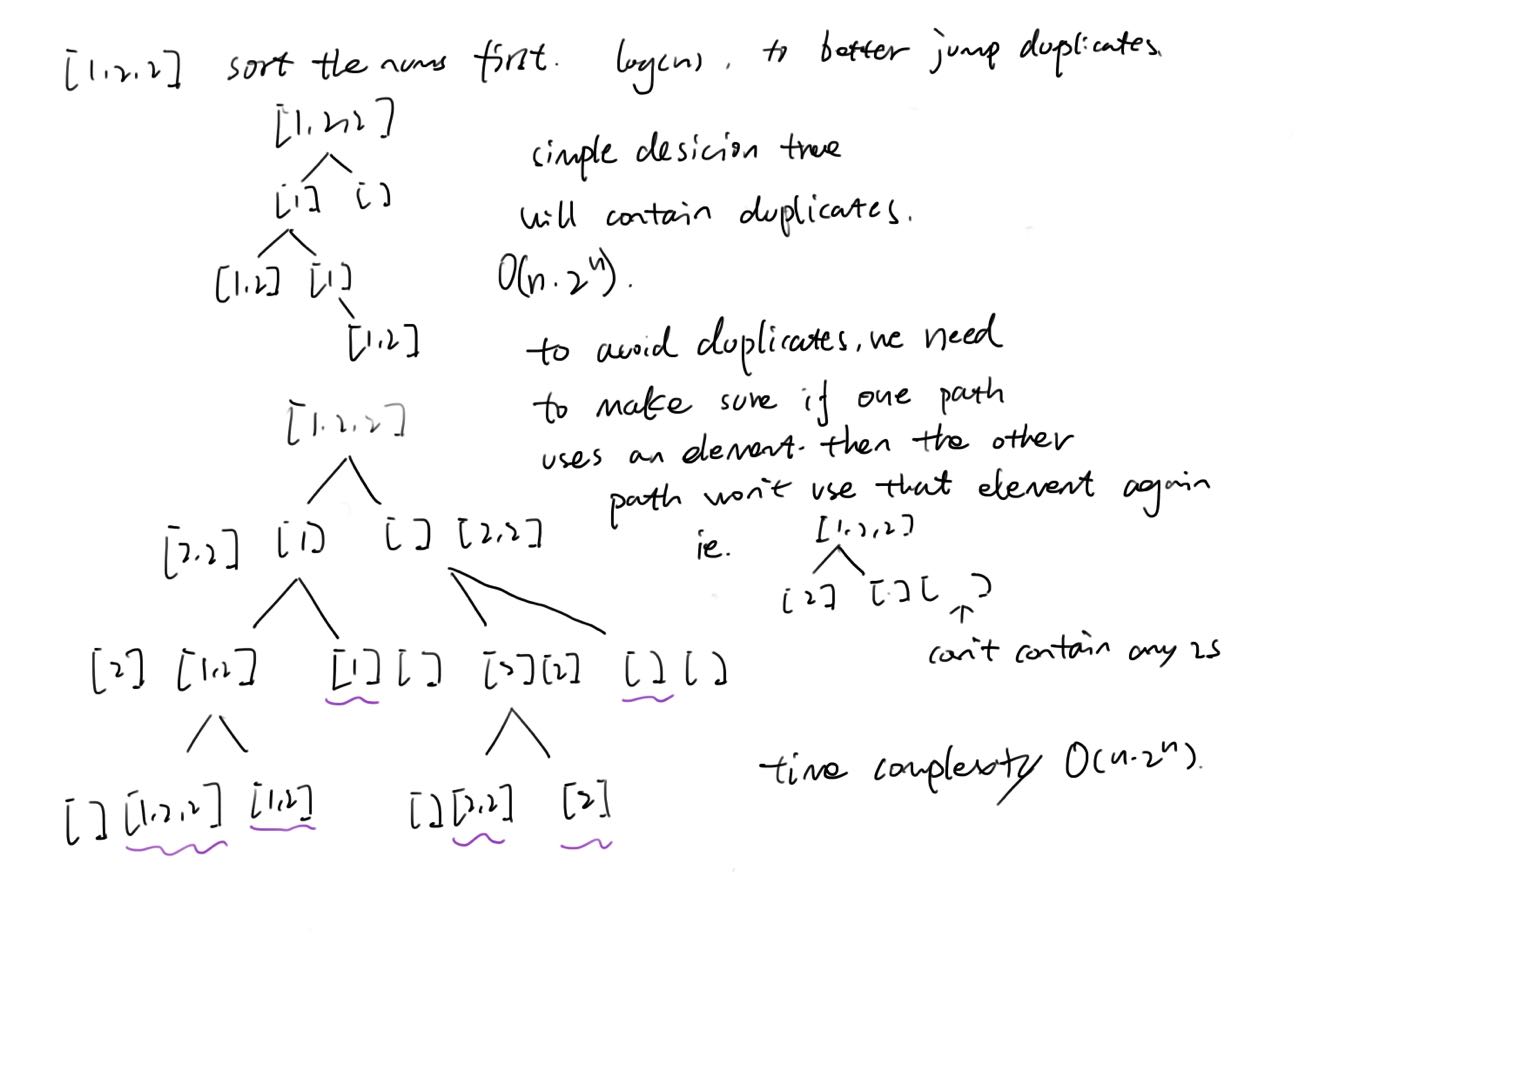 [1,2,2] sort the nums first. log(n), to better jump duplicates.
[1,2,2]
[1] []
[1,2] [1]
[1,2]
simple desicion tree
will contain duplicates.
O(n·2^n).
to avoid duplicates, we need
to make sure if one path
uses an element. then the other
path won't use that element again
ie. [1,2,2]
[2] [] [ ]
can't contain any 2s
[1,2,2]
[2,2] [1] [] [2,2]
[2] [1,2] [1] [] [2] [2] [] []
[] [1,2,2] [1,2] [] [2,2] [2]
time complexity O(n·2^n).